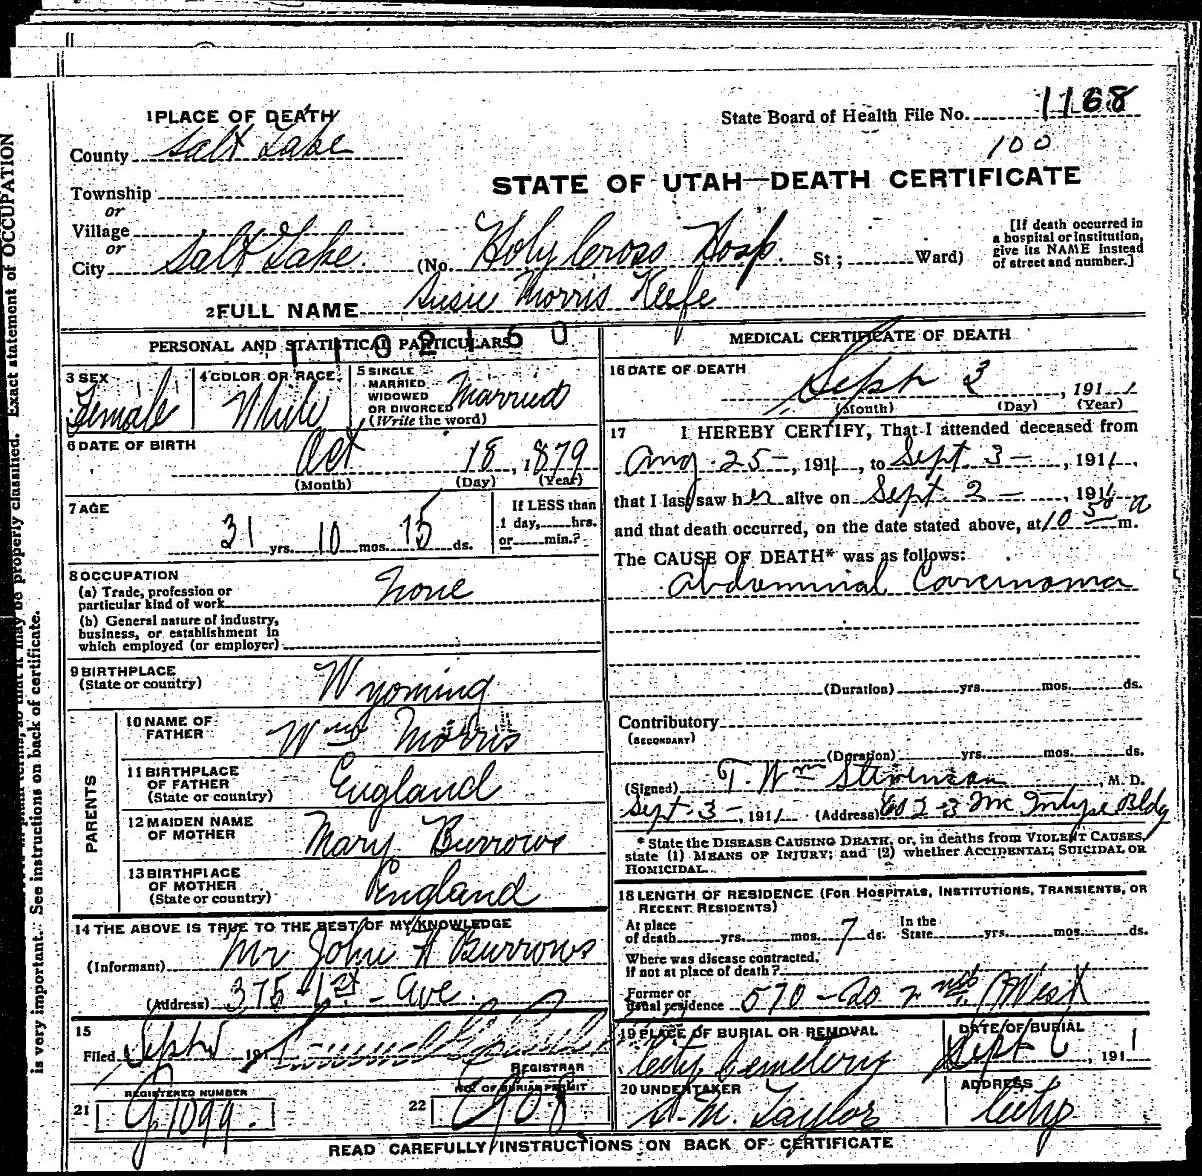 1 PLACE OF DEATH
State Board of Health File No. 1168
100
County Salt Lake
STATE OF UTAH—DEATH CERTIFICATE
Township
or
Village
or
City Salt Lake (No. Holy Cross Hosp. St; Ward)
[If death occurred in
a hospital or institution,
give its NAME instead
of street and number.]
2 FULL NAME Susie Morris Keefe
PERSONAL AND STATISTICAL PARTICULARS
3 SEX
Female
4 COLOR OR RACE
White
5 SINGLE
MARRIED
WIDOWED
OR DIVORCED
(Write the word)
Married
6 DATE OF BIRTH
Oct 18, 1879
(Month) (Day) (Year)
7 AGE
31 yrs. 10 mos. 15 ds.
If LESS than
1 day, hrs.
or min.?
8 OCCUPATION
(a) Trade, profession or
particular kind of work None
(b) General nature of industry,
business, or establishment in
which employed (or employer)
9 BIRTHPLACE
(State or country) Wyoming
PARENTS
10 NAME OF
FATHER Wm Morris
11 BIRTHPLACE
OF FATHER
(State or country) England
12 MAIDEN NAME
OF MOTHER Mary Burrows
13 BIRTHPLACE
OF MOTHER
(State or country) England
14 THE ABOVE IS TRUE TO THE BEST OF MY KNOWLEDGE
(Informant) Mr John A Burrows
(Address) 375-1st-Ave.
15
Filed Sept 191
REGISTRAR
REGISTERED NUMBER
21 G1099.
NO. OF BURIAL PERMIT
22
MEDICAL CERTIFICATE OF DEATH
16 DATE OF DEATH
Sept 3, 1911
(Month) (Day) (Year)
17 I HEREBY CERTIFY, That I attended deceased from
Aug. 25-, 1911, to Sept. 3-, 1911,
that I last saw her alive on Sept. 2-, 1911
and that death occurred, on the date stated above, at 10 50 a m.
The CAUSE OF DEATH* was as follows:
Abdominal Carcinoma
(Duration) yrs. mos. ds.
Contributory
(SECONDARY)
(Duration) yrs. mos. ds.
(Signed) T. Wm Stevenson, M. D.
Sept. 3-, 1911 (Address) Bldg
* State the DISEASE CAUSING DEATH, or, in deaths from VIOLENT CAUSES,
state (1) MEANS OF INJURY; and (2) whether ACCIDENTAL, SUICIDAL OR
HOMICIDAL.
18 LENGTH OF RESIDENCE (FOR HOSPITALS, INSTITUTIONS, TRANSIENTS, OR
RECENT RESIDENTS)
At place
of death yrs. mos. 7 ds.
In the
State yrs. mos. ds.
Where was disease contracted,
if not at place of death?
Former or
usual residence 570-So 2nd West
19 PLACE OF BURIAL OR REMOVAL
City Cemetery
DATE OF BURIAL
Sept 6, 1911
20 UNDERTAKER
S. M. Taylor
ADDRESS
City
READ CAREFULLY INSTRUCTIONS ON BACK OF CERTIFICATE
be properly classified. Exact statement of OCCUPATION
is very important. See instructions on back of certificate.